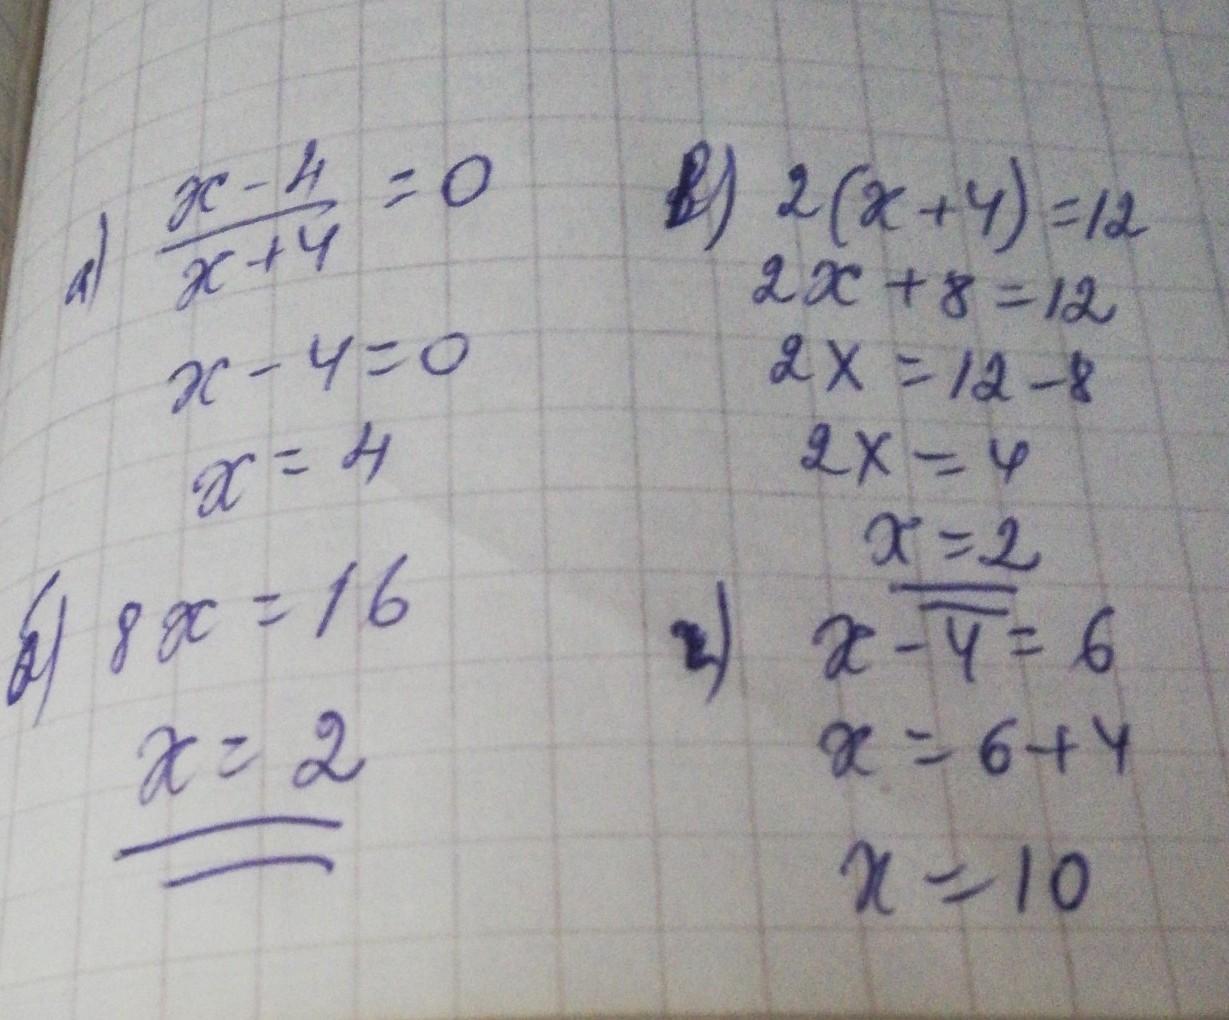 а) x-4/x+4 = 0
x - 4 = 0
x = 4
б) 8x = 16
x = 2
в) 2(x+4) = 12
2x + 8 = 12
2x = 12 - 8
2x = 4
x = 2
г) x - 4 = 6
x = 6 + 4
x = 10